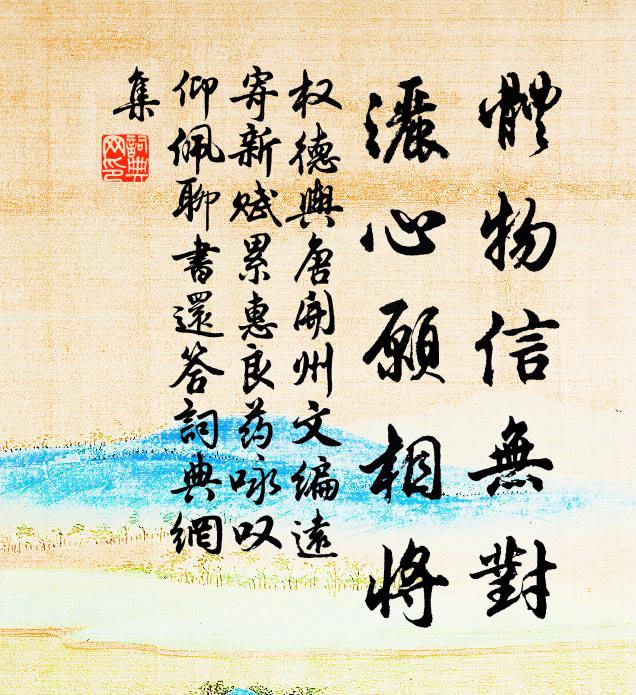 體物信無對
灑心願相將
权德輿唐開州文編遠
寄新赋累惠良药咏叹
仰佩聊書還答詞典網
集
詞典
网印